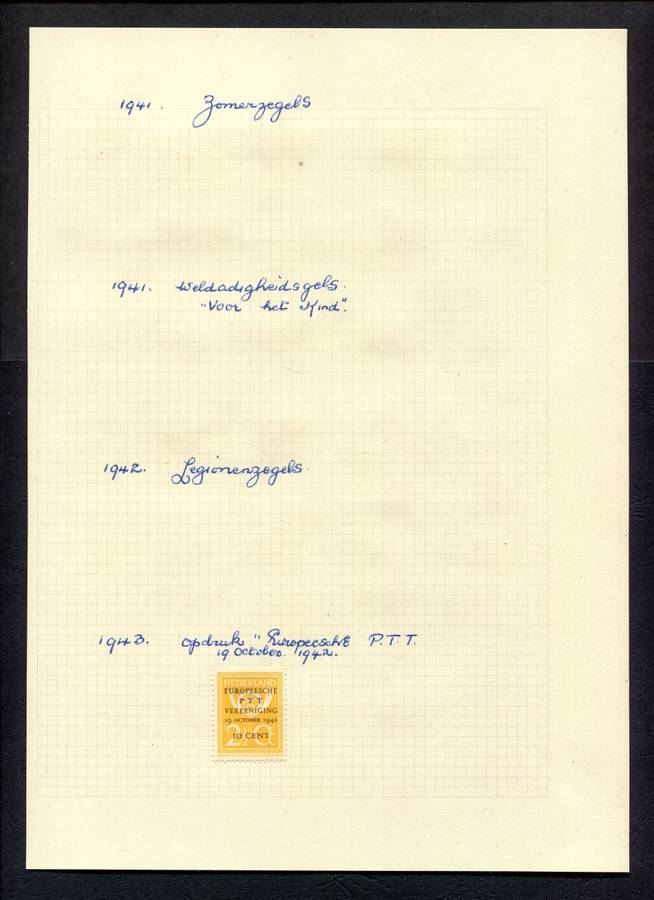 1941. Zomerzegels
1941. Weldadigheidsgels.
"Voor het Kind".
1942. Legioenenzegels.
1943. opdruk "Europeesche P.T.T.
19 October. 1942.
NEDERLAND
EUROPEESCHE
P T T
VEREENIGING
19 OCTOBER 1942
10 CENT
2½ Ct